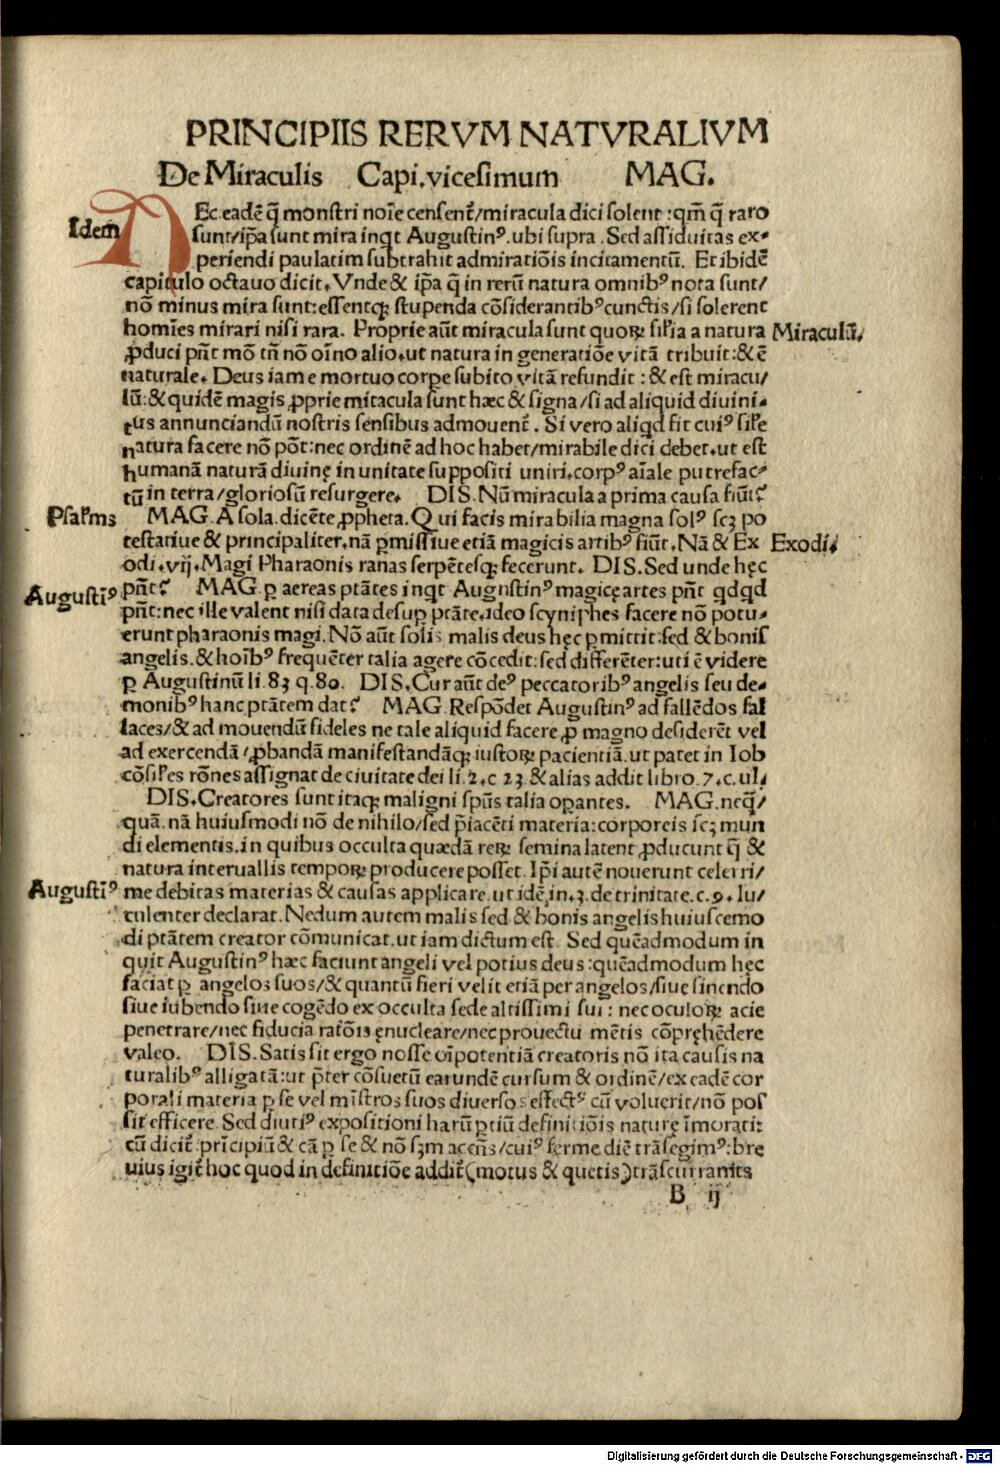 PRINCIPIIS RERVM NATVRALIVM
De Miraculis Capi.vicesimum MAG.
Idem
NEc eadē q̄ monstri noīe censent̄/miracula dici solent :qm̄ q̄ raro
sunt/ip̄a sunt mira inqt Augustinꝰ.ubi supra .Sed assiduitas ex-
periendi paulatim subtrahit admiratiōis incitamentū. Et ibidē
capitulo octauo dicit. Vnde & ip̄a q̄ in rerū natura omnibꝰ nota sunt/
nō minus mira sunt:essentqꝫ stupenda cōsiderantibꝰ cunctis/si solerent
homīes mirari nisi rara. Proprie aūt miracula sunt quoꝝ sil̄ia a natura
Miraculū.
ꝓduci pn̄t mō tn̄ nō oīno alio.ut natura in generatiōe vitā tribuit:& ē
naturale. Deus iam e mortuo corpe subito vitā refundit : & est miracu/
lū:& quidē magis ꝓprie miracula sunt hæc & signa/si ad aliquid diuini-
tus annunciandū nostris sensibus admouent̄. Si vero aliqd fit cuiꝰ sil̄e
natura facere nō pōt:nec ordinē ad hoc habet/mirabile dici debet.ut est
humanā naturā diuinę in unitate suppositi uniri.corpꝰ aīale putrefac-
tū in terra/gloriosū resurgere. DIS.Nū miracula a prima causa fiūt?
Psal̄ms
MAG.A sola.dicēte ꝓpheta.Qui facis mirabilia magna solꝰ scꝫ po
testatiue & principaliter.nā ꝑmissiue etiā magicis artibꝰ fiūt.Nā & Ex
Exodi.
odi.vij.Magi Pharaonis ranas serpētesqꝫ fecerunt. DIS.Sed unde hęc
Augustīꝰ
pn̄t? MAG.ꝑ aereas ptātes inqt Augustinꝰ magicę artes pn̄t qdqd
pn̄t:nec ille valent nisi data desup ptāte.ideo scyniphes facere nō potu-
erunt pharaonis magi.Nō aūt solis malis deus hęc ꝑmittit:sed & bonis
angelis.& hoībꝰ frequēter talia agere cōcedit:sed differēter:uti ē videre
ꝑ Augustinū li.83 q.80. DIS.Cur aūt deꝰ peccatoribꝰ angelis seu de-
monibꝰ hanc ptātem dat? MAG.Respōdet Augustinꝰ ad fallēdos fal
laces/& ad mouendū fideles ne tale aliquid facere ꝓ magno desiderēt vel
ad exercendā/ꝓbandā manifestandāqꝫ iustoꝝ pacientiā.ut patet in Iob
cōsil̄es rōnes assignat de ciuitate dei li.2.c 23.& alias addit libro.7.c.ul.
DIS.Creatores sunt itaqꝫ maligni spūs talia oꝑantes. MAG.neq̄/
quā.nā huiusmodi nō de nihilo/sed p̄iacēti materia:corporeis scꝫ mun
di elementis.in quibus occulta quædā reꝝ semina latent ꝓducunt q̄ &
natura interuallis tempoꝝ producere posset. Ip̄i autē nouerunt celerri/
Augustīꝰ
me debitas materias & causas applicare.ut idē in.3.de trinitate.c.9.lu/
culenter declarat.Nedum autem malis sed & bonis angelis huiuscemo
di ptātem creator cōmunicat.ut iam dictum est. Sed quēadmodum in
quit Augustinꝰ hæc faciunt angeli vel potius deus :quēadmodum hęc
faciat ꝑ angelos suos/& quantū fieri velit etiā per angelos/siue sinendo
siue iubendo siue cogēdo ex occulta sede altissimi sui : nec oculoꝝ acie
penetrare/nec fiducia ratōis ęnucleare/nec prouectu mētis cōpręhēdere
valeo. DIS.Satis sit ergo nosse oīpotentiā creatoris nō ita causis na
turalibꝰ alligatā:ut p̄ter cōsuetū earundē cursum & ordinē/ex eadē cor
porali materia ꝑ se vel mīstros suos diuersos effectꝰ cū voluerit/nō pos
sit efficere.Sed diutiꝰ expositioni harū ꝑtiū definitiōis nature īmorati:
cū dicit̄.prīcipiū & cā ꝑ se & nō sꝫm accn̄s/cuiꝰ ferme diē trāsegimꝰ:bre
uius igit̄ hoc quod in definitiōe addit̄(motus & quetis)trāscurramus
B ij
Digitalisierung gefördert durch die Deutsche Forschungsgemeinschaft - DFG